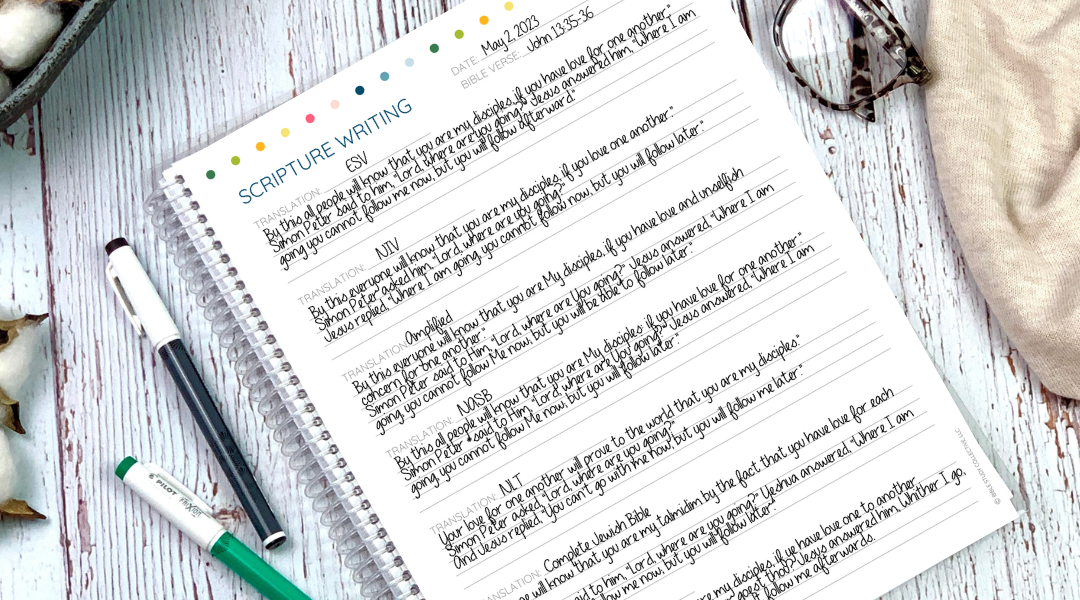 SCRIPTURE WRITING
DATE: May 2, 2023
BIBLE VERSE: John 13:35-36
TRANSLATION: ESV
By this all people will know that you are my disciples, if you have love for one another."
Simon Peter said to him, "Lord, where are you going?" Jesus answered him, "Where I am
going you cannot follow me now, but you will follow afterward."
TRANSLATION: NIV
By this everyone will know that you are my disciples, if you love one another."
Simon Peter asked him, "Lord, where are you going?"
Jesus replied, "Where I am going, you cannot follow now, but you will follow later."
TRANSLATION: Amplified
By this everyone will know that you are My disciples, if you have love and unselfish
concern for one another."
Simon Peter said to Him, "Lord, where are You going?" Jesus answered, "Where I am
going, you cannot follow Me now, but you will be able to follow later."
TRANSLATION: NASB
By this all people will know that you are My disciples: if you have love for one another."
Simon Peter *said to Him, "Lord, where are You going?" Jesus answered, "Where I am
going, you cannot follow Me now, but you will follow later."
TRANSLATION: NLT
Your love for one another will prove to the world that you are my disciples."
Simon Peter asked, "Lord, where are you going?"
And Jesus replied, "You can't go with me now, but you will follow me later."
TRANSLATION: Complete Jewish Bible
will know that you are my talmidim by the fact that you have love for each
said to him, "Lord, where are you going?" Yeshua answered, "Where I am
follow me now, but you will follow later."
are my disciples, if ye have love one to another.
goest thou? Jesus answered him, Whither I go,
follow me afterwards.
© BIBLE STUDY COLLECTIVE LLC
PILOT